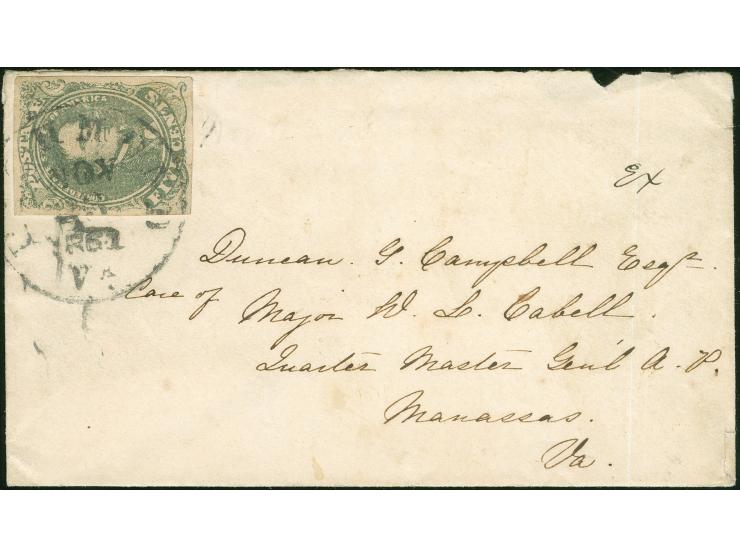 NOV
1861
VA
Ex
Duncan. G. Campbell Esqr.
Care of Major W. L. Cabell.
Quarter Master Genl A. P.
Manassas.
Va.